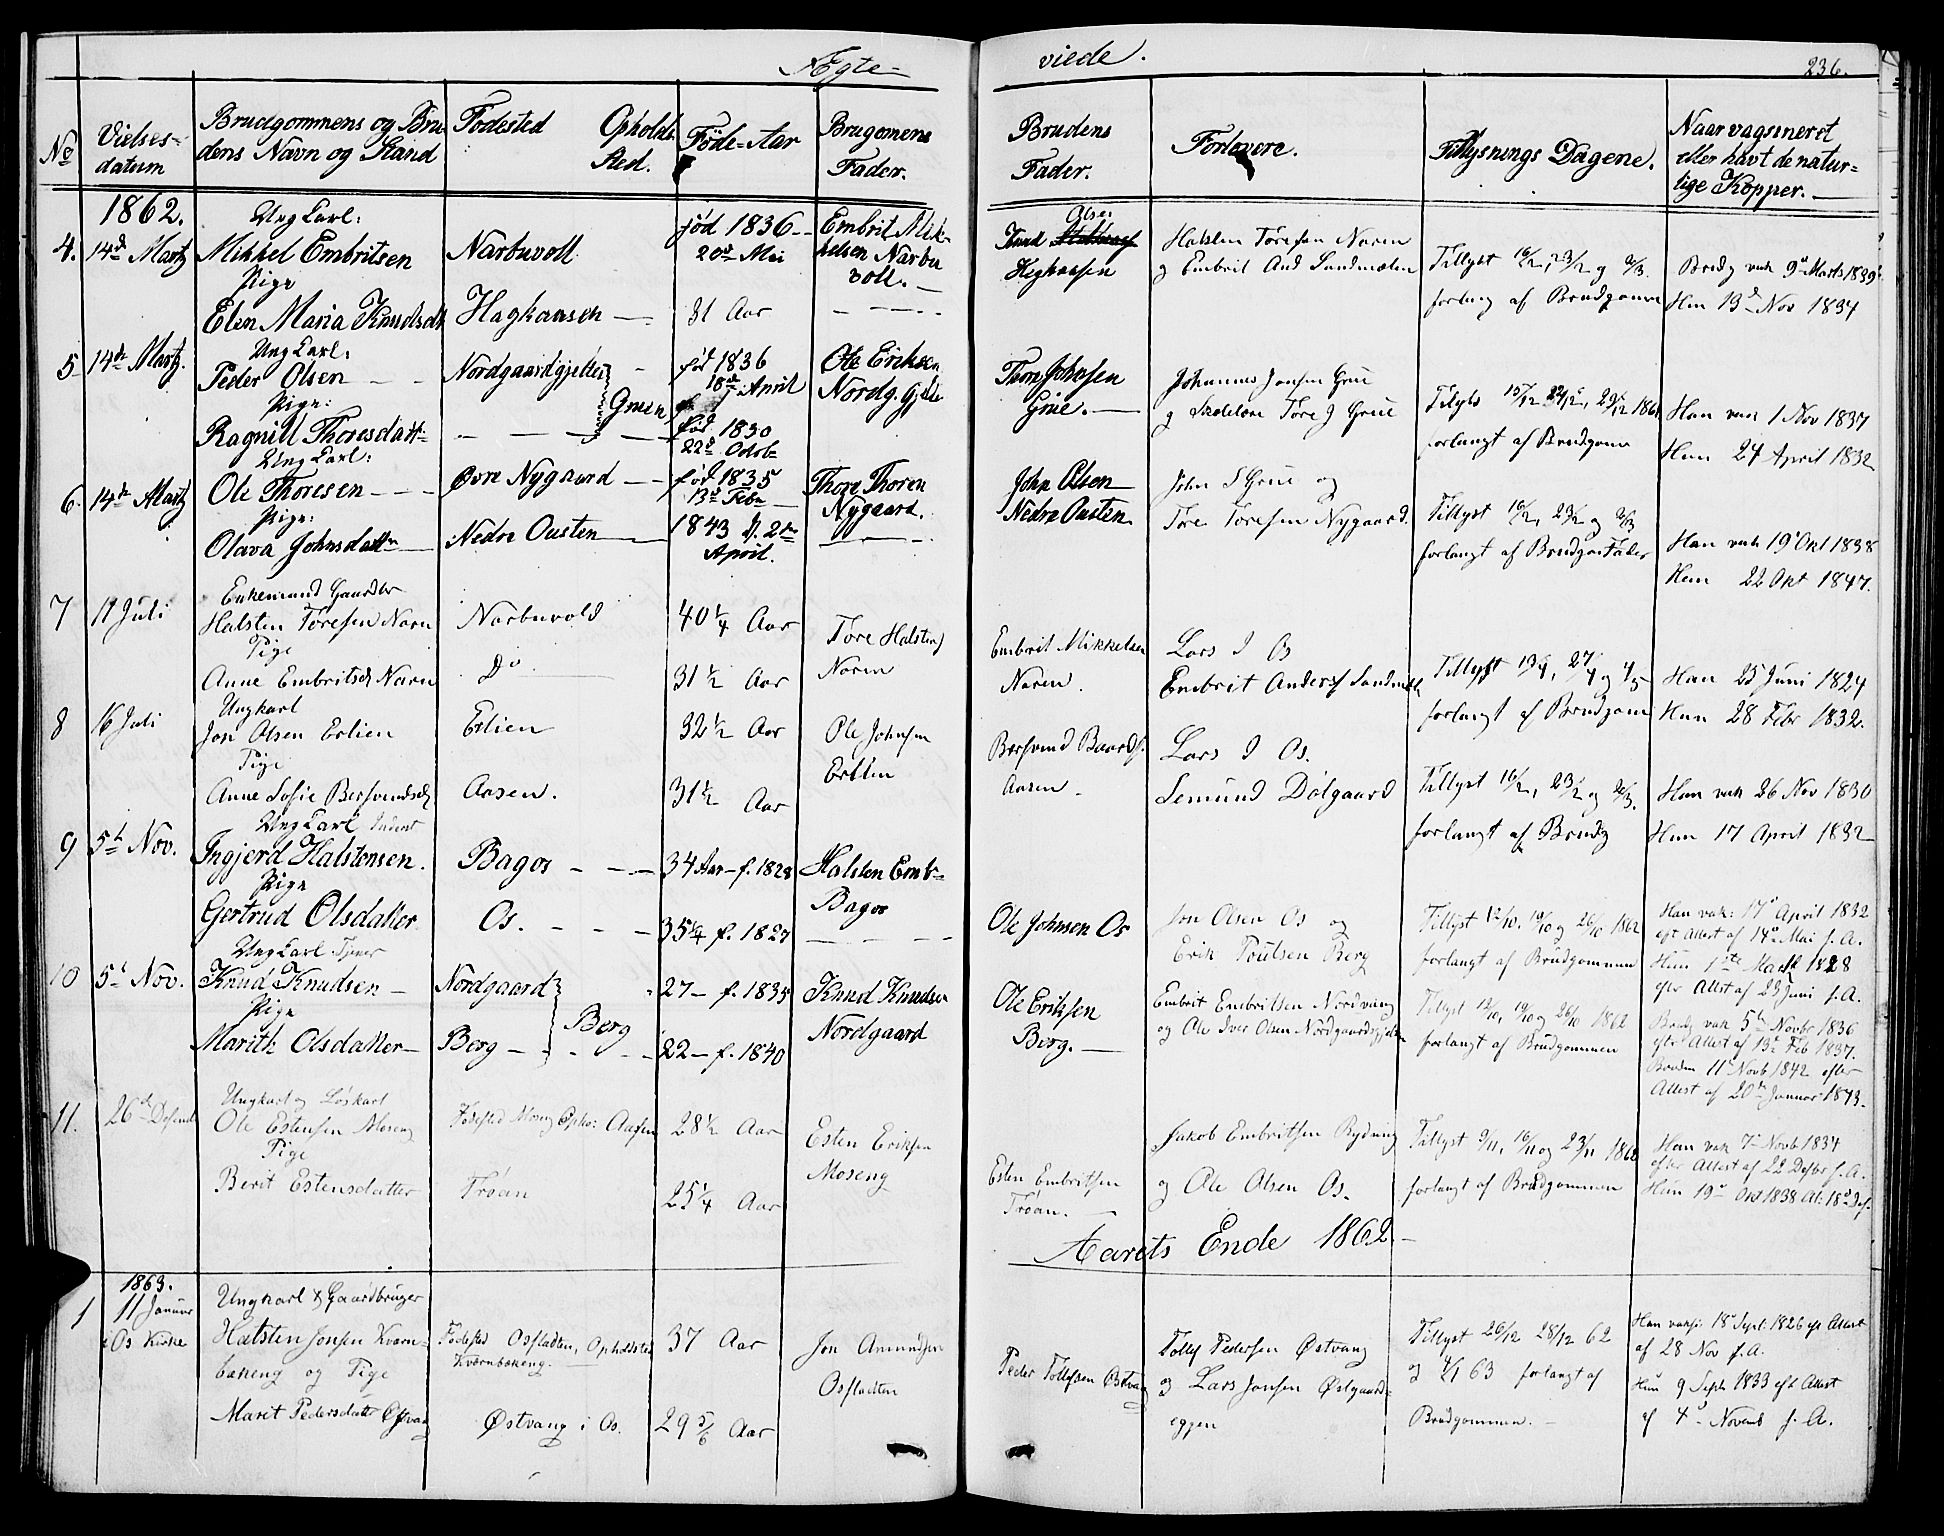 Ægte-
viede.
236.
No
Vielses-
datum
Brudgommens og Bru
dens Navn og Stand
Fødested Opholds
Sted.
Føde-Aar
Brugomens
Fader.
Brudens
Fader.
Forlovere.
Tillysnings Dagene.
Naar vagsineret
eller havt de natur-
lige Kopper.
1862.
Ung Karl:
4. 14de Martz Mikkel Embritsen Narbuvoll
Pige
Elen Maria Knudsdt Haghaansen
fød 1836
20de Mai
31 Aar
Embrit Mik-
kelsen Narbu
voll.
Olsen
Knud
Haghaansen
Halsten Toresen Noren
og Embrit And Sandmælen
Tillyst 16/2, 23/2 og 2/3.
forlang af Brudgomm
Brudg vak 9de Marts 1839
Hun 13de Nov 1834
Ung Karl:
5 14de Martz. Peder Olsen Nordgaardgjelten
Pige:
Gruen
Ragnill Thoresdatt
fød 1836
18de April
fød 1830
22de Octob
Ole Eriksen
Nordg. Gjelte
Thore Johnsen
Grue.
Johannes Jonsen Grue
og Skolelær Tore J Grue
Tilyst 15/12 22/12, 29/12 1861
forlangt af Brudgom
Han vak 1 Nov 1837
Hun 24 April 1832
Ung Karl:
6. 14de Martz Ole Thoresen Øvre Nygaard
Pige:
Olava Johnsdatter Nedre Ousten
fød 1835
13de Febr
1843 d. 2den
April.
Thore Thoren
Nygaard.
John Olsen
Nedre Ousten
John S Grue og
Tore Toresen Nygaard.
Tillyst 16/2, 23/2 og 2/3
forlangt af Brudgom Fader
Han vak 19 Okt 1838
Hun 22 Okt 1847.
Enkemand Gaardbr
7 11 Juli Halsten Toresen Noren Narbuvold
Pige
Anne Embritsd Noren Do
40 1/4 Aar
31 1/2 Aar
Tore Halsten
Noren
Embrit Mikkelsen
Noren.
Lars J Os
Embrit Anders Sandmæl
Tillyst 13/4, 27/4 og 4/5
forlangt af Brudgom
Han 25 Juni 1824
Hun 28 Febr 1832.
Ungkarl
8 16 Juli Jon Olsen Erlien Erlien
Pige
Anne Sofie Bersvendsd Aasen.
32 1/2 Aar
31 1/2 Aar
Ole Johnsen
Erlien
Bersvend Baards.
Aasen
Lars J Os.
Semund Dølgaard
Tillyst 16/2, 23/2 og 2/3.
forlangt af Brudg
Han vak 26 Nov 1830
Hun 17 April 1832
Ung Karl
9 5te Nov. Ingjerd Halstensen. Bagos
Pige
Gertrud Olsdatter Os.
34 Aar f. 1828
35 1/4 f. 1827
Halsten Emb
Bagos
Ole Johnsen Os
Jon Olsen Os og
Erik Poulsen Berg
Tillyst 12/10, 19/10 og 26/10 1862
forlangt af Brudgommen
Han vak: 17de April 1832
eft Attest af 14de Mai s. A.
Hun 1ste Marts 1828
efter Attest af 23 Juni s. A.
Ung Karl
10 5te Nov. Knud Knudsen Nordgaard
Pige
Berg
Marith Olsdatter Berg
27 f. 1835
22 f. 1840
Knud Knudsen
Nordgaard
Ole Eriksen
Berg.
Embrit Embritsen Nordvang
og Ole Iver Olsen Nordgaardsgjelten
Tillyst 12/10, 19/10 og 26/10 1862
forlangt af Brudgommen
Brudg vak 5te Novbr 1836
eft Attest af 13de Feb 1837.
Bruden 11te Novb 1842 efter
Attest af 20de Januar 1843.
Ungkarl og Løskarl
11. 26de Desemb Ole Estensen Moseng Fødested Moseng Opho: Aasen
Pige
Berit Estensdatter Trøan
28 1/2 Aar
25 1/4 Aar
Esten Eriksen
Moseng
Esten Embritsen
Trøan.
Jakob Embritsen Rydning
og Ole Olsen Os.
Tillyst 9/11, 16/11 og 23/11 1862
forlangt af Brudgommen
Han vak 7de Novb 1834
efter Attest af 22 Desbr s. A.
Hun 19de Okt 1838 At: 18de Des.
Aarets Ende 1862.
1863.
1 11 Januar
i Os Kirke
Ungkarl & Gaardbruger
Halsten Jonsen Kvern-
bakeng og Pige
Marit Pedersdatter Østvang
Fødested Osstadten, Opholdsted
Kvernbakeng.
Østvang i Os.
37 Aar
29 5/6 Aar
Jon Amundsen
Osstadten
Peder Tollefsen Østvang
Tollef Pedersen Østvang
og Lars Jonsen Østgaards-
eggen
Tillyst 26/12 28/12 62
og 4/1 63 forlangt af
Brudgommen.
Han vaks: 18de Sept. 1826 eft Attest
af 28 Nov s. A.
Hun 9 Septb 1833 eft Attest
af 4de Novemb s. A.